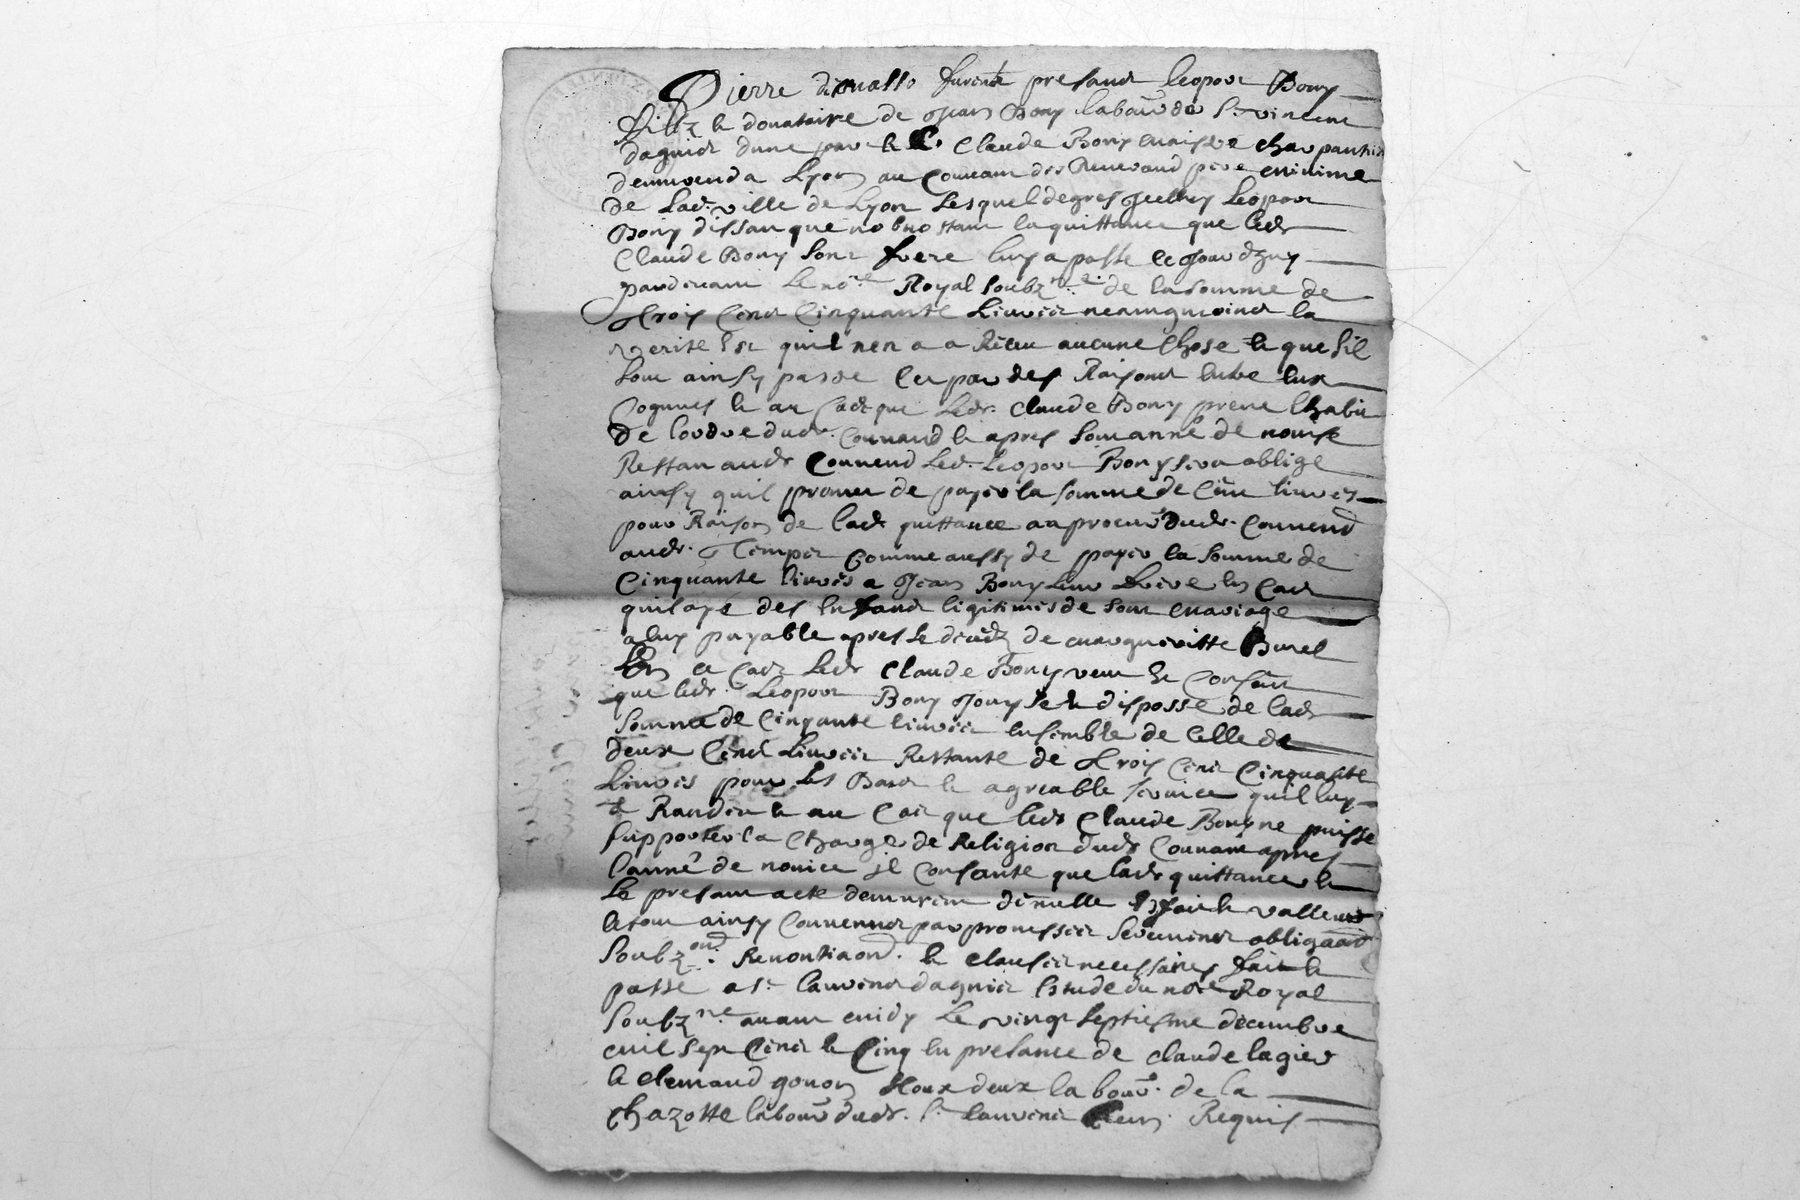 Pierre presant leopor Bony
fillz & donataire de Jean Bony labour de St vincent
dagnier dune par & Claude Bony maistre charpantier
a Lyon au Couvant des Reverand pere minime
de lad. ville de Lyon lesquel degres Leopor
Bony dissan que nobnostant la quittance que ledt
Claude Bony sont frere luy a passe ce Jourdhuy
pardevant le nore Royal soubzne de la somme de
trois Cent Cinquante livres neanmgmoins la
verite est quil nen a a Receu aucune Chose & que sil
lont ainsy passe Cet par des Raisons entre eux
Cognues & au Cadt que Ledt Claude Bony prene lhabit
de lordre dudt Couvand & apres son année de novise
Restan audt Couvend Led. Leopor Bony sera oblige
ainsy quil promet de payer la somme de Cent livres
pour Raison de ladt quittance a a procur dudt Couvend
audt. Tempts Comme aussy de payer la somme de
Cinquante livres a Jean Bony leur frere en Cadt
quil aye des enfandt ligitimes de sont mariage
a luy payable apres le décedz de margueritte Burel
En ce Cadt Ledt Claude Bony veut & Consent
que ledt Leopor Bony Jouysse & disposse de ladt
somme de Cinqante livres ensemble de Celle de
deux Cent Livres Restante de trois Cent Cinquante
Livres pour les Bons & agreable service quil luy
a Randu & au Cas que ledt Claude Bony ne puisse
supporter la Charge de Religion dudt Couvant apres
lanné de novice il Consante que ladt quittance &
Le presant acte demurent de nulle & valleur
& tout ainsy Convenus par promesses serements obligaon
soubzon. Renontiaon. & clauses necessaires fait &
passé a St laurent dagnier Estude du nore Royal
soubzne avant midy Le vingt septiesme decembre
mil sept Cent & Cinq en presance de claude lagier
& clemand gonon tous deux labour. de la
chazotte labour dudt. St laurent Requis